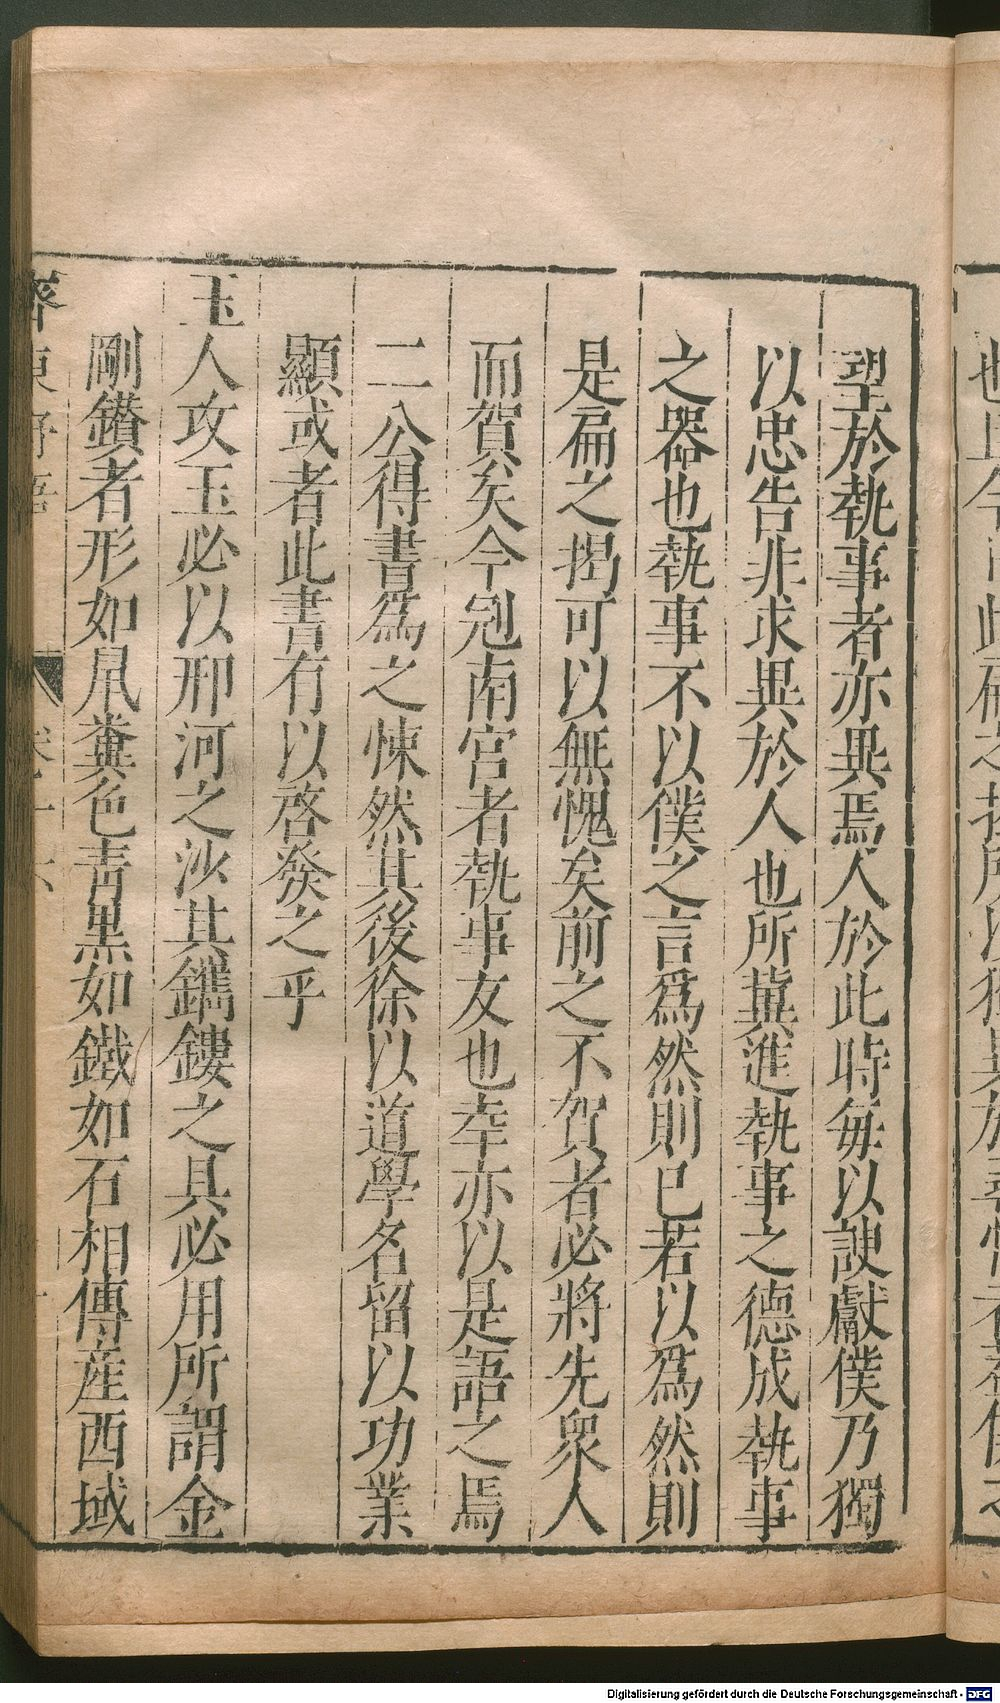 望於執事者亦異焉人於此時每以諛獻僕乃獨
以忠告非求異於人也所冀進執事之德成執事
之器也執事不以僕之言爲然則已若以爲然則
是扁之揭可以無愧矣前之不賀者必將先衆人
而賀矣今冠南宮者執事友也幸亦以是語之焉
二公得書爲之悚然其後徐以道學名留以功業
顯或者此書有以啓發之乎
玉人攻玉必以邢河之沙其鐫鏤之具必用所謂金
剛鑽者形如鼠糞色青黑如鐵如石相傳産西域
Digitalisierung gefördert durch die Deutsche Forschungsgemeinschaft - DFG